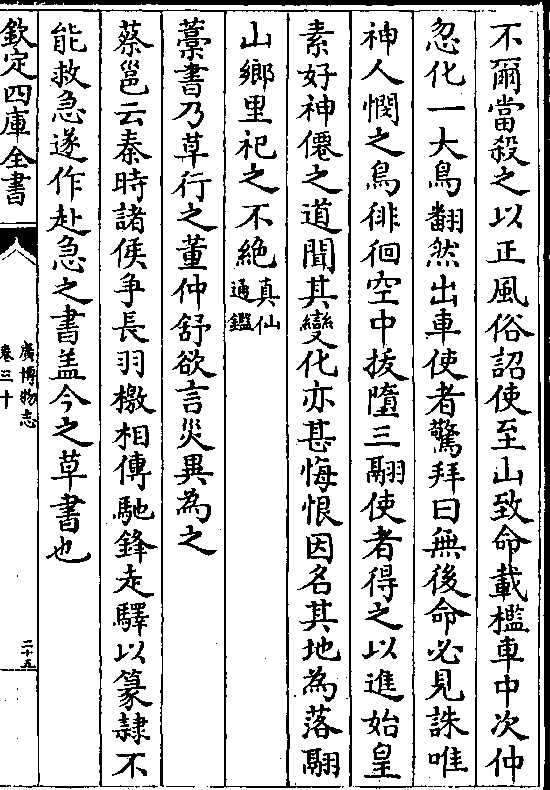 不爾當殺之以正風俗詔使至山致命載檻車中次仲
忽化一大鳥翻然出車使者驚拜曰無後命必見誅唯
神人憫之鳥徘徊空中拔墮三翮使者得之以進始皇
素好神僊之道聞其變化亦甚悔恨因名其地為落翮
山鄉里祀之不絶真仙
通鑑
藁書乃草行之董仲舒欲言災異為之
蔡邕云秦時諸侯争長羽檄相傳馳鋒走驛以篆隸不
能救急遂作赴急之書盖今之草書也
欽定四庫全書
廣博物志
卷三十
二十五